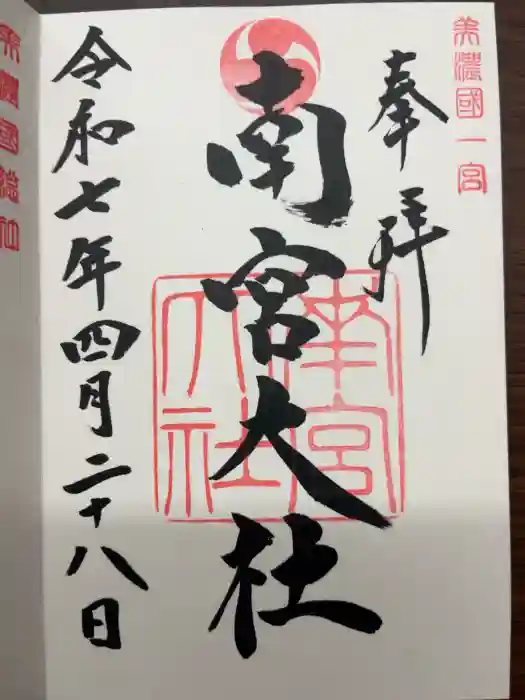 美濃國一宮
奉拝
南宮大社
南宮大社
令和七年四月二十八日
美濃國総社